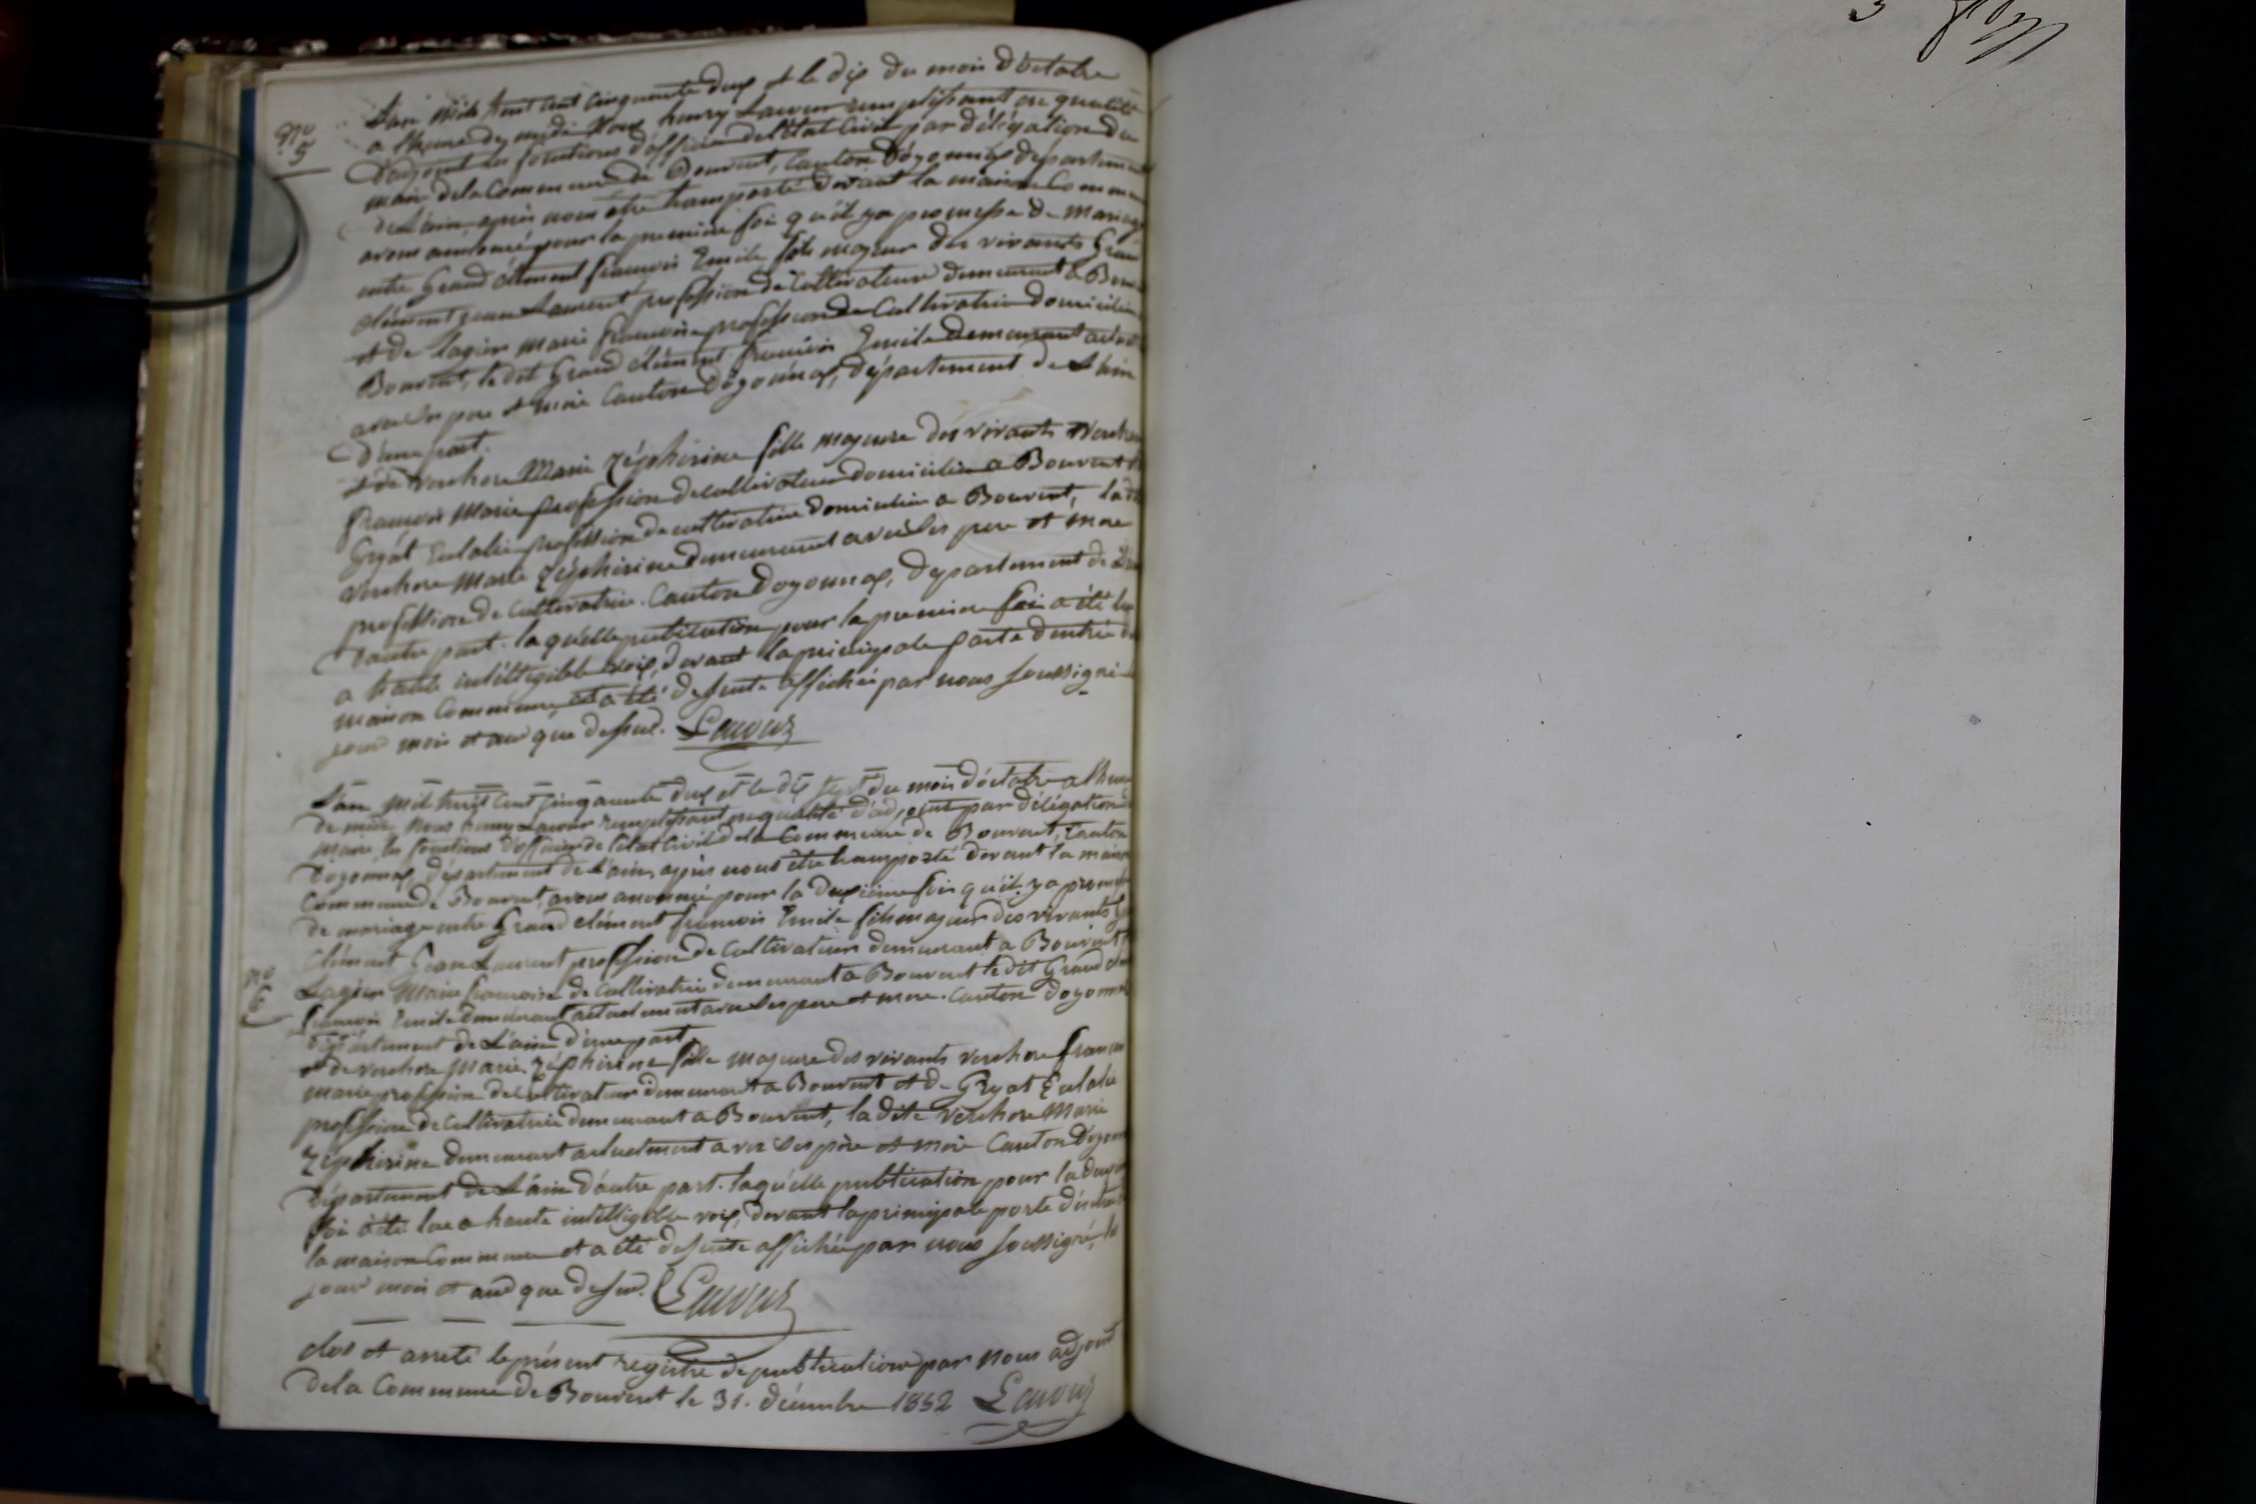 L'an mil huit cent cinquante deux et le dix du mois d'octobre
N° 5
a l'heure de midi Nous henry Lavour remplissant en qualité
D'adjoint les fonctions d'officier de l'état Civil par délégation du
maire de la Commune de Bouvent, Canton d'oyonnax departement
de L'ain, après nous être transporté devant la maison Commune
avons annoncé pour la première foi qu'il y a promesse de mariage
entre Grand clément françois Emile fils majeur des vivants Grand
clément jean Laurent profession de Cultivateur demeurant a Bouvent
et de lagier marie francoise profession de Cultivatrice domiciliée
Bouvent, le dit Grand clément francois Emile demeurant
avec ses pere et mère Canton d'oyonnax, département de L'ain
D'une part.
et de verchere Marie Zéphirine fille majeure des vivants Verchere
françois Marie profession de cultivateur domicilié a Bouvent
Gryat Eulalie profession de cultivatrice domiciliée a Bouvent, la dite
verchere Marie Zéphirine demeurant avec ses pere et mere
profession de Cultivatrice. Canton Doyonnax, departement de L'ain
Dautre part. laqu'elle publication pour la premiere foi a été lue
a haute intélligible voix, devant la principale porte d'entrée
maison Commune, et a été desuite affichée par nous soussigné
jour mois et an que dessus. Lavour
L'an mil huit cent cinquante deux et le dix sept du mois d'octobre a l'heure
de midi, Nous henry Lavour remplissant en qualité d'adjoint par délégation
maire les fonctions d'officier de l'état Civil de la Commune de Bouvent, Canton
Doyonnax, département de L'ain, après nous être transporté devant la maison
Commune de Bouvent, avons annoncé pour la deuxième fois qu'il y a promesse
de mariage entre Grand clément francois Emile fils majeur des vivants
clément Jean Laurent profession de Cultivateur demeurant a Bouvent
N° 6
Lagier Marie francoise de Cultivatrice demeurant a Bouvent le dit Grand
francois Emile demeurant actuelment avec ses pere et mere. Canton doyonnax
département de L'ain d'une part
et de verchere Marie Zéphirine fille majeure des vivants verchere francois
marie profession de Cultivateur demeurant a Bouvent et de Gryat Eulalie
profession de Cultivatrice demeurant a Bouvent, la dite verchere Marie
Zéphirine demeurant actuelment avec ses père et mère Canton D'oyonnax
Département de L'ain d'autre part. laqu'elle publication pour la
foi a été lue a haute intelligible voix, devant la principale porte d'entrée
la maison Commune et a été desuite affichée par nous soussigné, le
jour mois et an que dessus. Lavour
clos et arreté le présent registre de publication par nous adjoint
de la Commune de Bouvent le 31. décembre 1852 Lavour